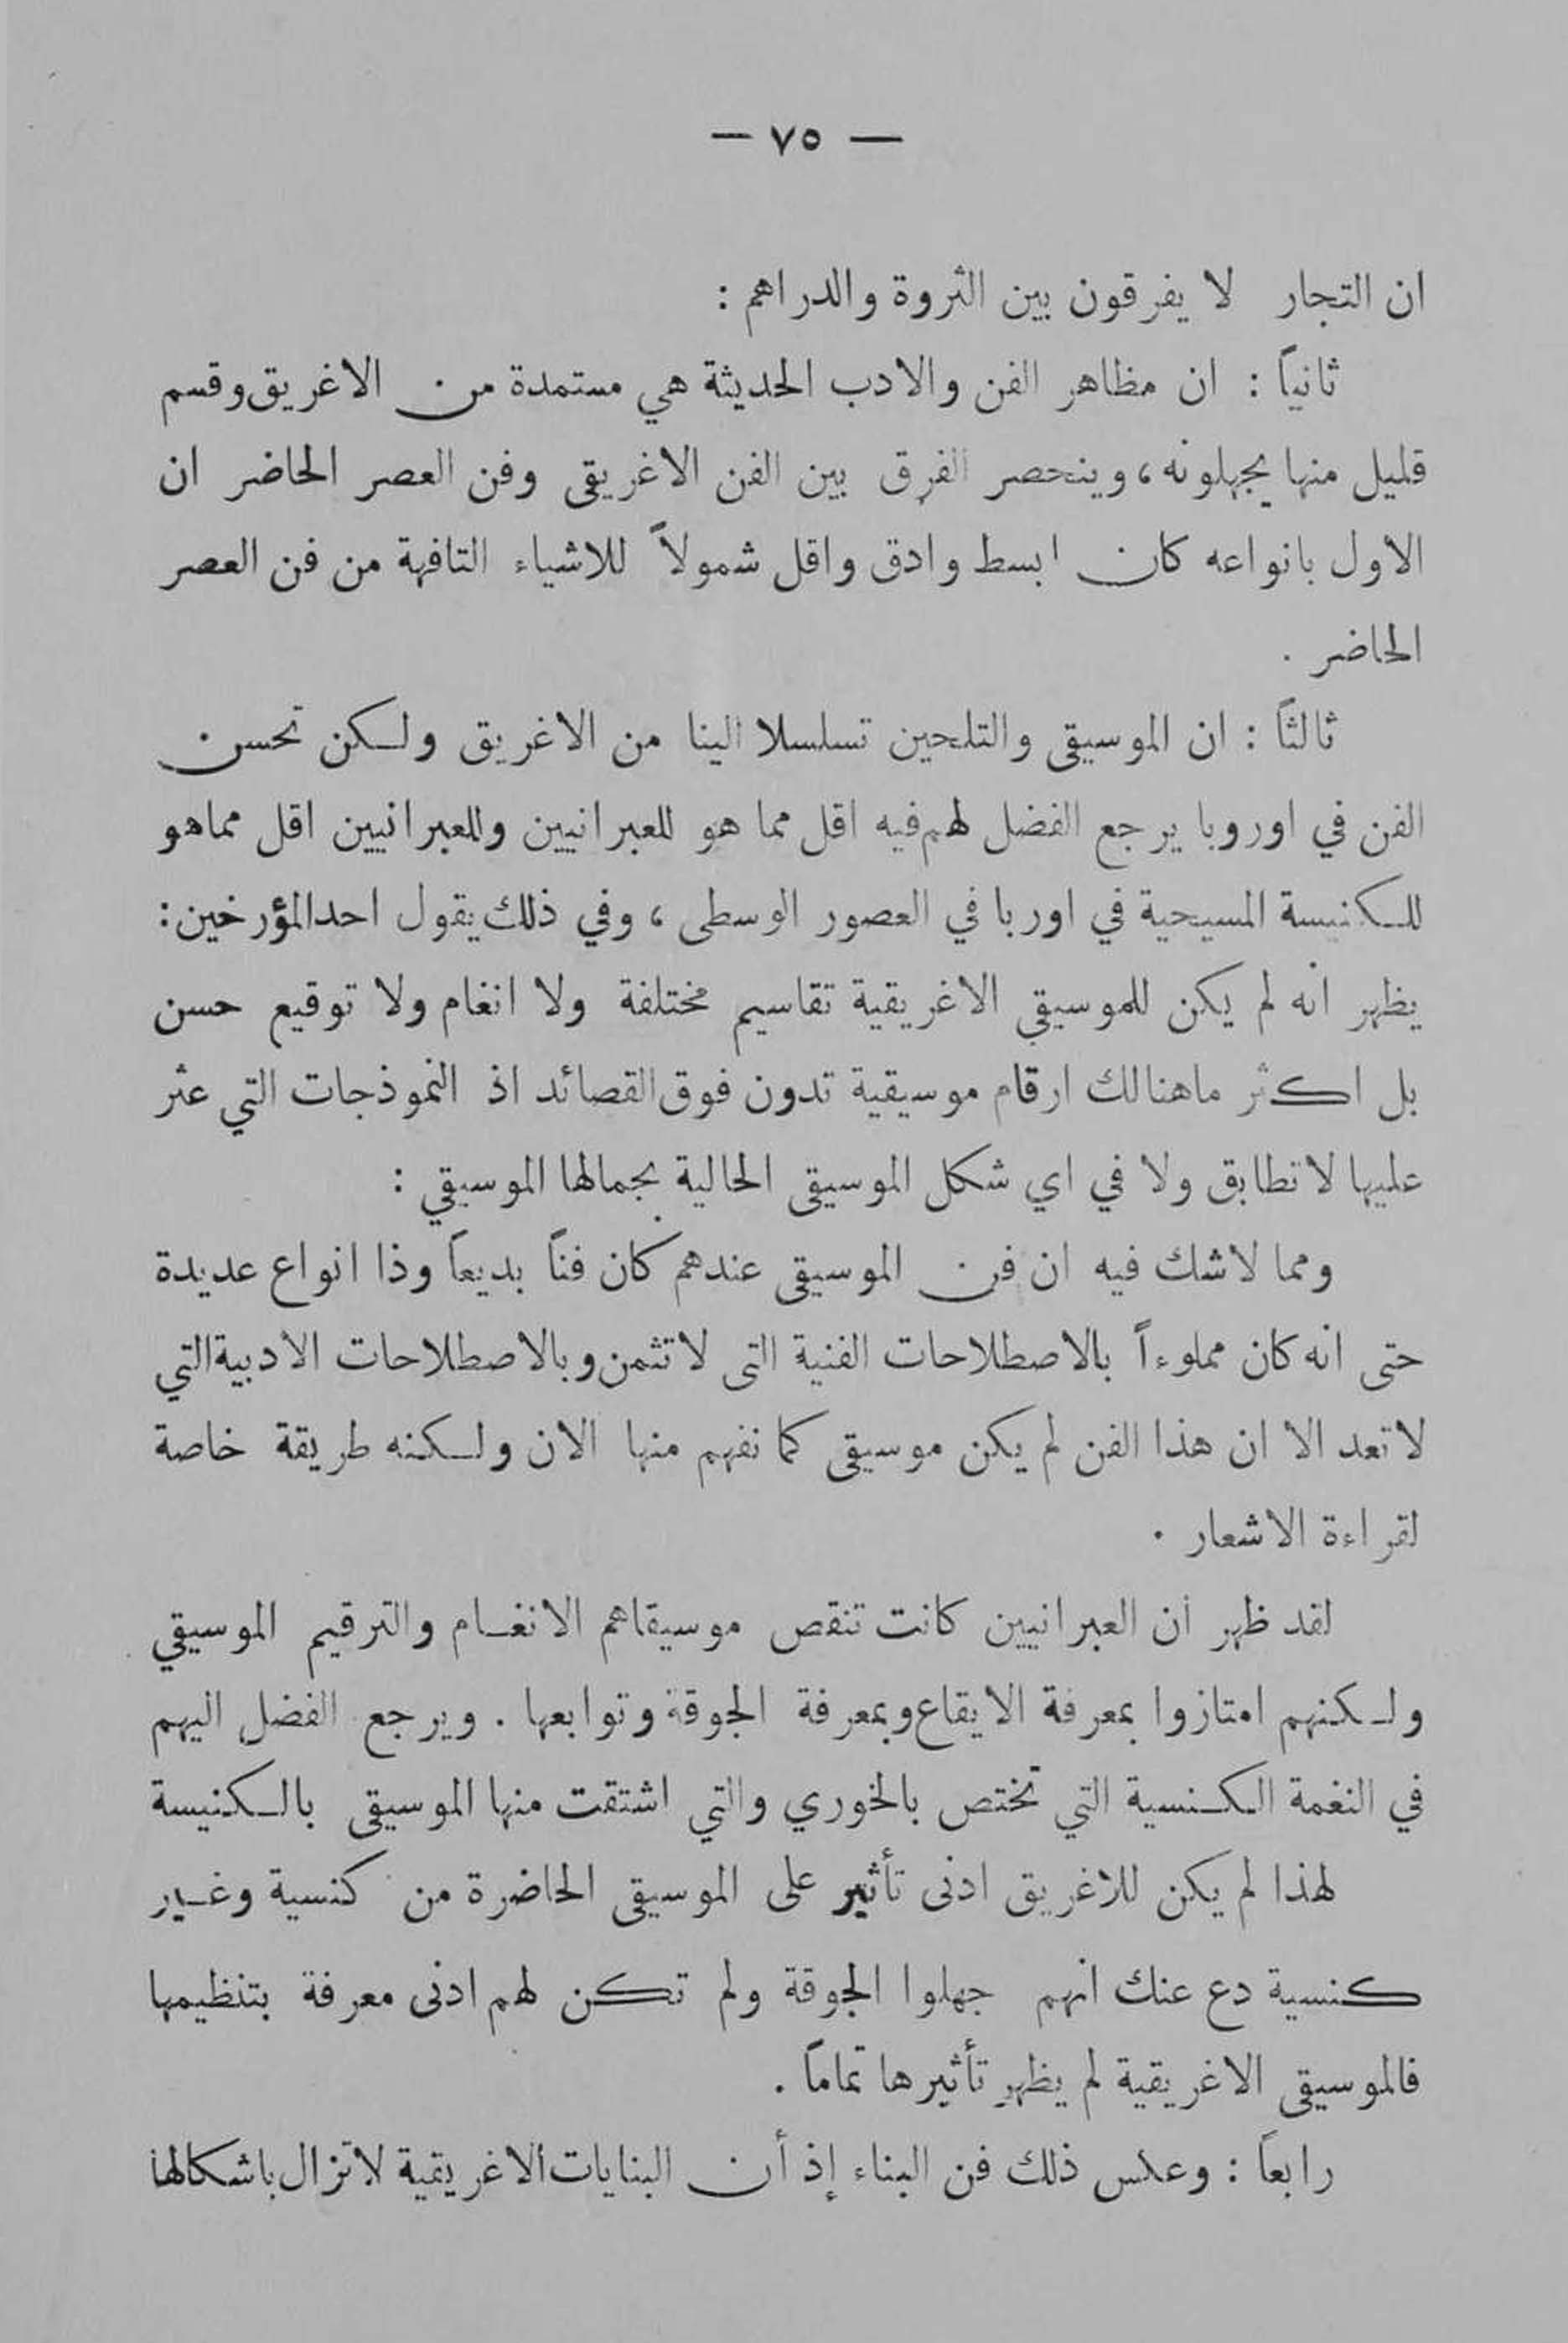 — ٧٥ —
ان التجار لا يفرقون بين الثروة والدراهم :
ثانياً : ان مظاهر الفن والادب الحديثة هي مستمدة من الاغريق وقسم
قليل منها يجهلونه ، وينحصر الفرق بين الفن الاغريقى وفن العصر الحاضر ان
الاول بانواعه كان ابسط وادق واقل شمولاً للاشياء التافهة من فن العصر
الحاضر .
ثالثاً : ان الموسيقى والتلحين تسلسلا الينا من الاغريق ولكن تحسن
الفن في اوروبا يرجع الفضل لهم فيه اقل مما هو للعبرانيين وللعبرانيين اقل مماهو
للكنيسة المسيحية في اوربا في العصور الوسطى ، وفي ذلك يقول احدالمؤرخين :
يظهر انه لم يكن للموسيقي الاغريقية تقاسيم مختلفة ولا انغام ولا توقيع حسن
بل اكثر ماهنالك ارقام موسيقية تدون فوق القصائد اذ النموذجات التي عثر
عليها لا تطابق ولا في اي شكل الموسيقى الحالية بجمالها الموسيقي :
ومما لاشك فيه ان فن الموسيقى عندهم كان فناً بديعاً وذا انواع عديدة
حتى انه كان مملوءاً بالاصطلاحات الفنية التى لا تثمن وبالاصطلاحات الادبية التي
لا تعد الا ان هذا الفن لم يكن موسيقى كما نفهم منها الان ولكنه طريقة خاصة
لقراءة الاشعار .
لقد ظهر ان العبرانيين كانت تنقص موسيقاهم الانغام والترقيم الموسيقي
ولكنهم امتازوا بمعرفة الايقاع وبمعرفة الجوقة وتوابعها . ويرجع الفضل اليهم
في النغمة الكنسية التي تختص بالخوري والتي اشتقت منها الموسيقى بالكنيسة
لهذا لم يكن للاغريق ادنى تأثير على الموسيقى الحاضرة من كنسية وغير
كنسية دع عنك انهم جهلوا الجوقة ولم تكن لهم ادنى معرفة بتنظيمها
فالموسيقى الاغريقية لم يظهر تأثيرها تماماً .
رابعاً : وعكس ذلك فن البناء إذ أن البنايات الاغريقية لاتزال باشكالها